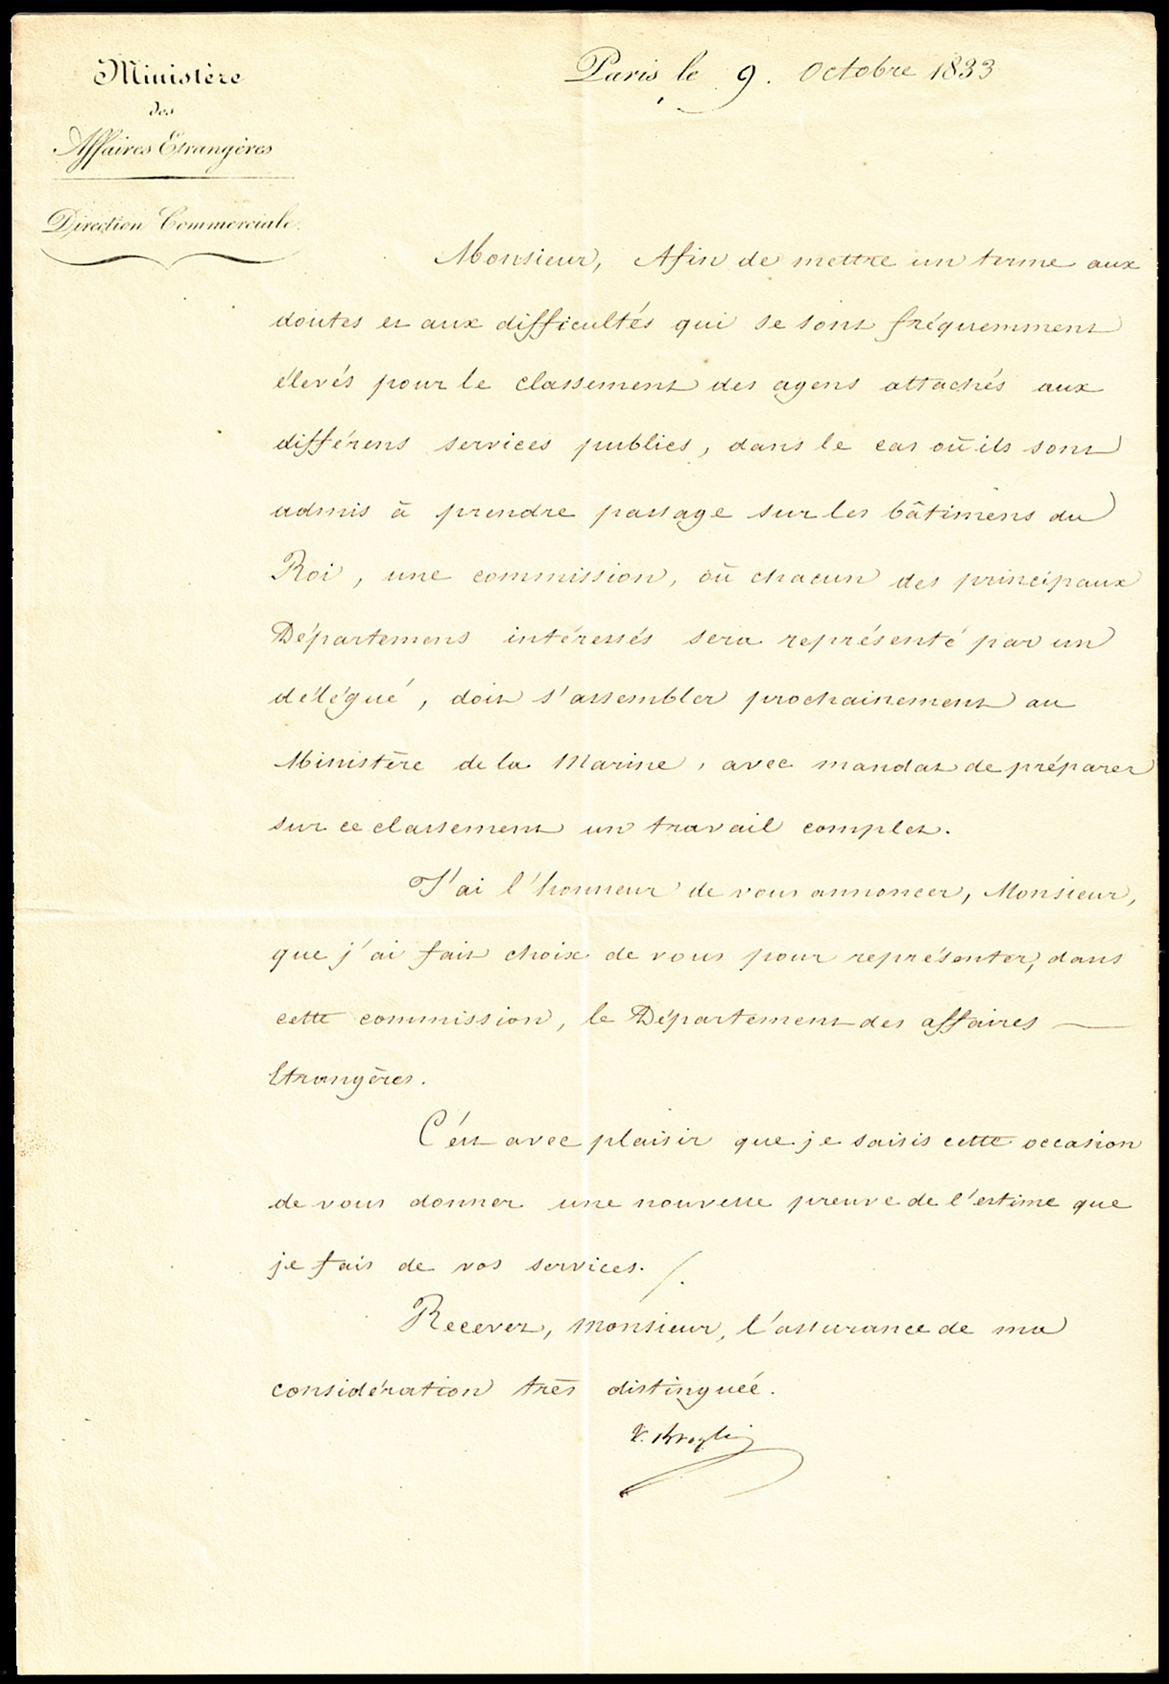 Ministère
des
Affaires Etrangères
Direction Commerciale.
Paris le 9. Octobre 1833
Monsieur, Afin de mettre un terme aux
doutes et aux difficultés qui se sont fréquemment
élevés pour le classement des agens attachés aux
différens services publics, dans le cas où ils sont
admis à prendre passage sur les bâtimens du
Roi, une commission, où chacun des principaux
Départemens intéressés sera représenté par un
délégué, doit s'assembler prochainement au
Ministère de la Marine, avec mandat de préparer
sur ce classement un travail complet.
J'ai l'honneur de vous annoncer, Monsieur,
que j'ai fait choix de vous pour représenter, dans
cette commission, le Département des affaires
Etrangères.
C'est avec plaisir que je saisis cette occasion
de vous donner une nouvelle preuve de l'estime que
je fais de vos services. /.
Recevez, Monsieur, l'assurance de ma
considération très distinguée.
V. Broglie